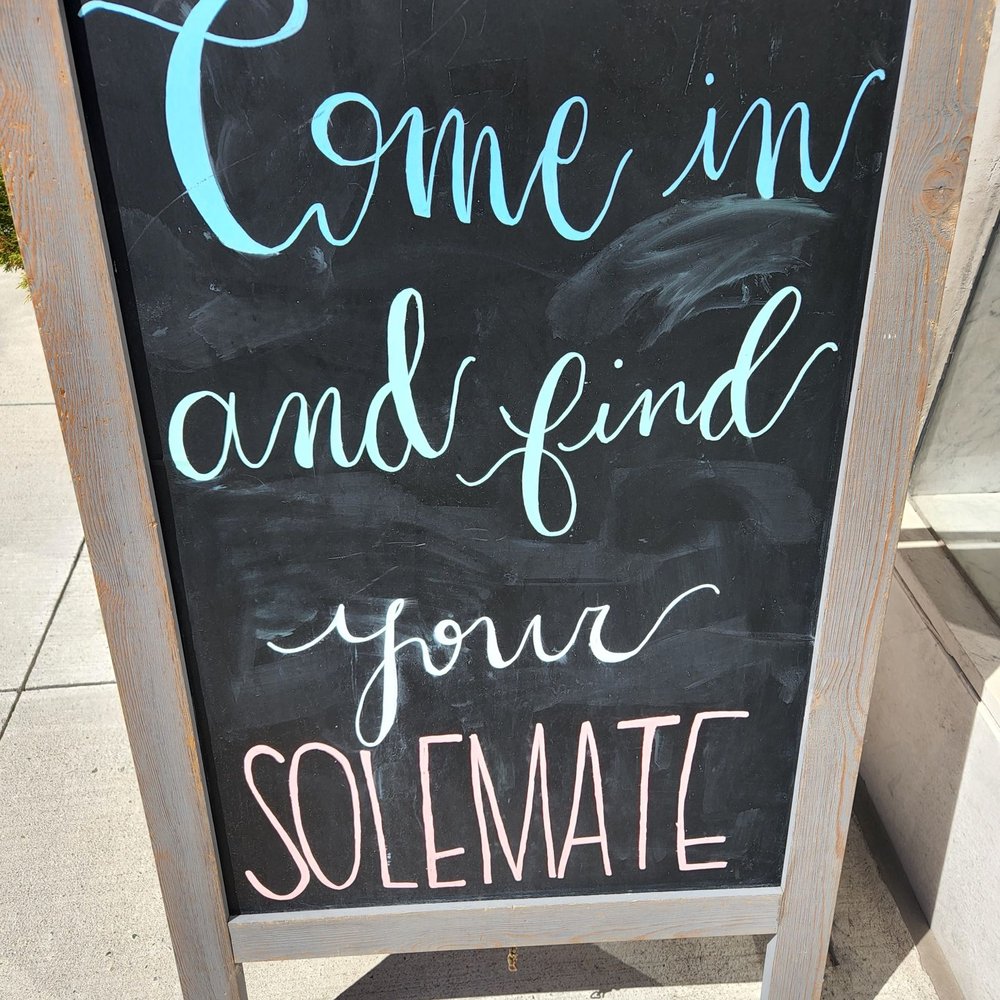 Come in
and find
your
SOLEMATE